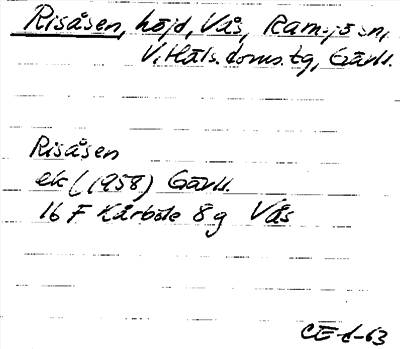 Risåsen, höjd, Vås, Ramsjö sn,
V. Häls. doms. tg, Gävll.
Risåsen
ek (1958) Gävll.
16 F Kårböle 8g Vås